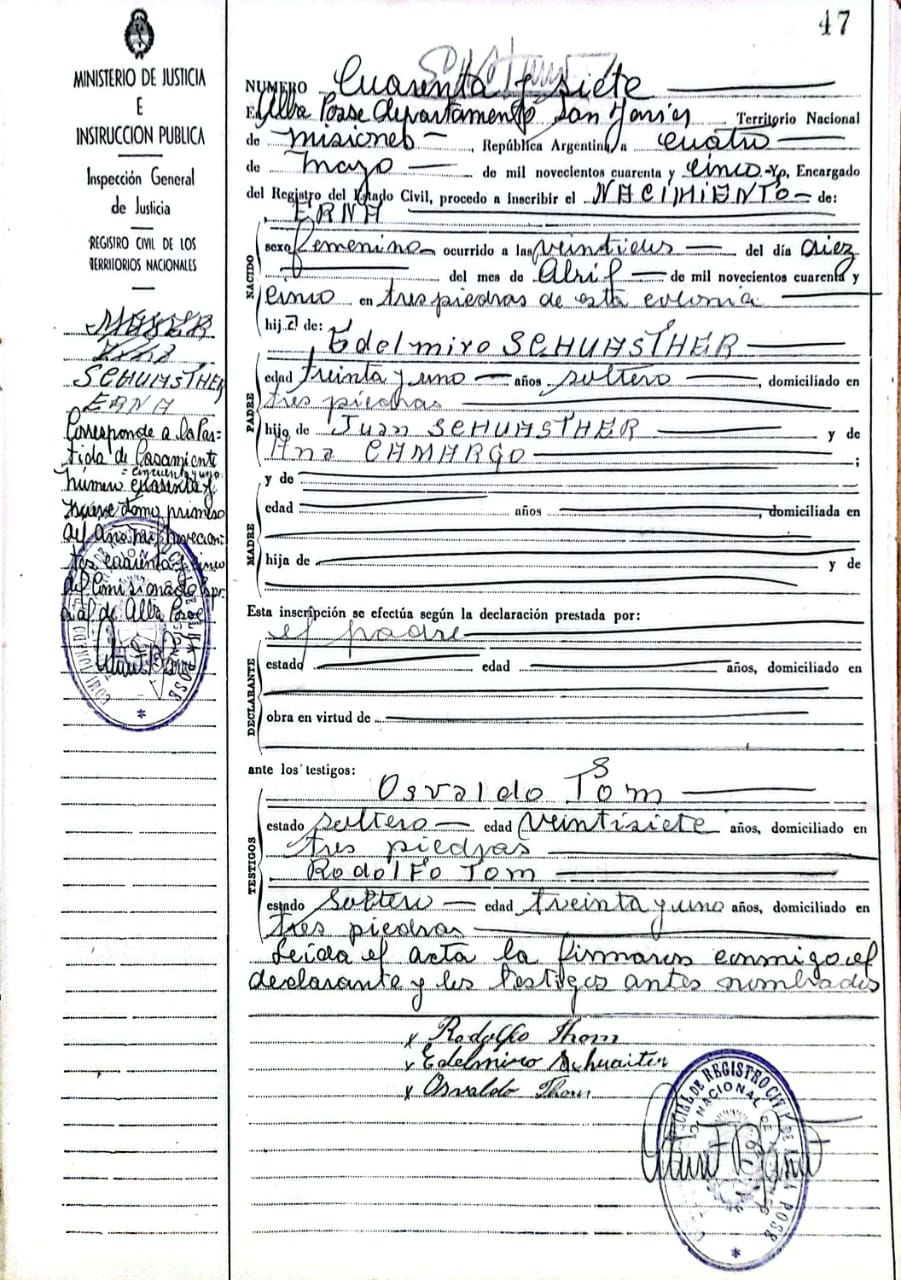 47
MINISTERIO DE JUSTICIA
E
INSTRUCCION PUBLICA
Inspección General
de Justicia
REGISTRO CIVIL DE LOS
TERRITORIOS NACIONALES
SCHUASTHER
ERNA
Corresponde a la Par=
tida de Casamiento
= cincuenta y uno=
número cuarenta y
nueve tomo primero
del año mil novecien=
tos cuarenta y cinco
del Comisionado espe
cial de Alba Posse
NUMERO Cuarenta y siete
En Alba Posse Departamento San Javier Territorio Nacional
de misiones, República Argentina, a cuatro
de mayo de mil novecientos cuarenta y cinco. Yo, Encargado
del Registro del Estado Civil, procedo a inscribir el NACIMIENTO de:
ERNA
NACIDO
sexo femenino ocurrido a las veintidus del día diez
del mes de Abril de mil novecientos cuarenta y
cinco en tres piedras de esta colonia
hija de:
PADRE
Edelmiro SCHUASTHER
edad treinta y uno años soltero, domiciliado en
tres piedras
hijo de Juan SCHUASTHER y de
Ana CAMARGO;
MADRE
y de
edad años, domiciliada en
hija de y de
Esta inscripción se efectúa según la declaración prestada por:
el padre
DECLARANTE
estado edad años, domiciliado en
obra en virtud de
ante los testigos:
TESTIGOS
Osvaldo Tom
estado soltero edad veintisiete años, domiciliado en
tres piedras
Rodolfo Tom
estado soltero edad treinta y uno años, domiciliado en
tres piedras
Leída el acta la firmaron conmigo el
declarante y los testigos antes nombrados
x Rodolfo Thom
x Edelmiro
x Osvaldo Thom